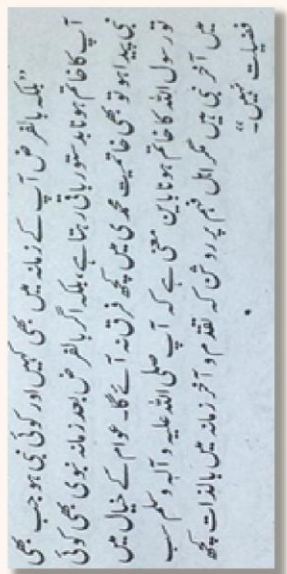 ”بلکہ بالفرض آپ کے زمانہ میں بھی کہیں اور کوئی نبی ہو جب بھی
آپ کا خاتم ہونا بدستور باقی رہتا ہے، بلکہ اگر بالفرض بعد زمانہ نبوی بھی کوئی
نبی پیدا ہو تو بھی خاتمیت محمدی میں کچھ فرق نہ آئے گا۔ عوام کے خیال میں
تو رسول اللہ کا خاتم ہونا باین معنی ہے کہ آپ صلی اللہ علیہ وآلہ وسلم سب
میں آخر نبی ہیں مگر اہل فہم پر روشن کہ تقدم و آخر زمانہ میں بالذات کچھ
فضیلت نہیں“۔